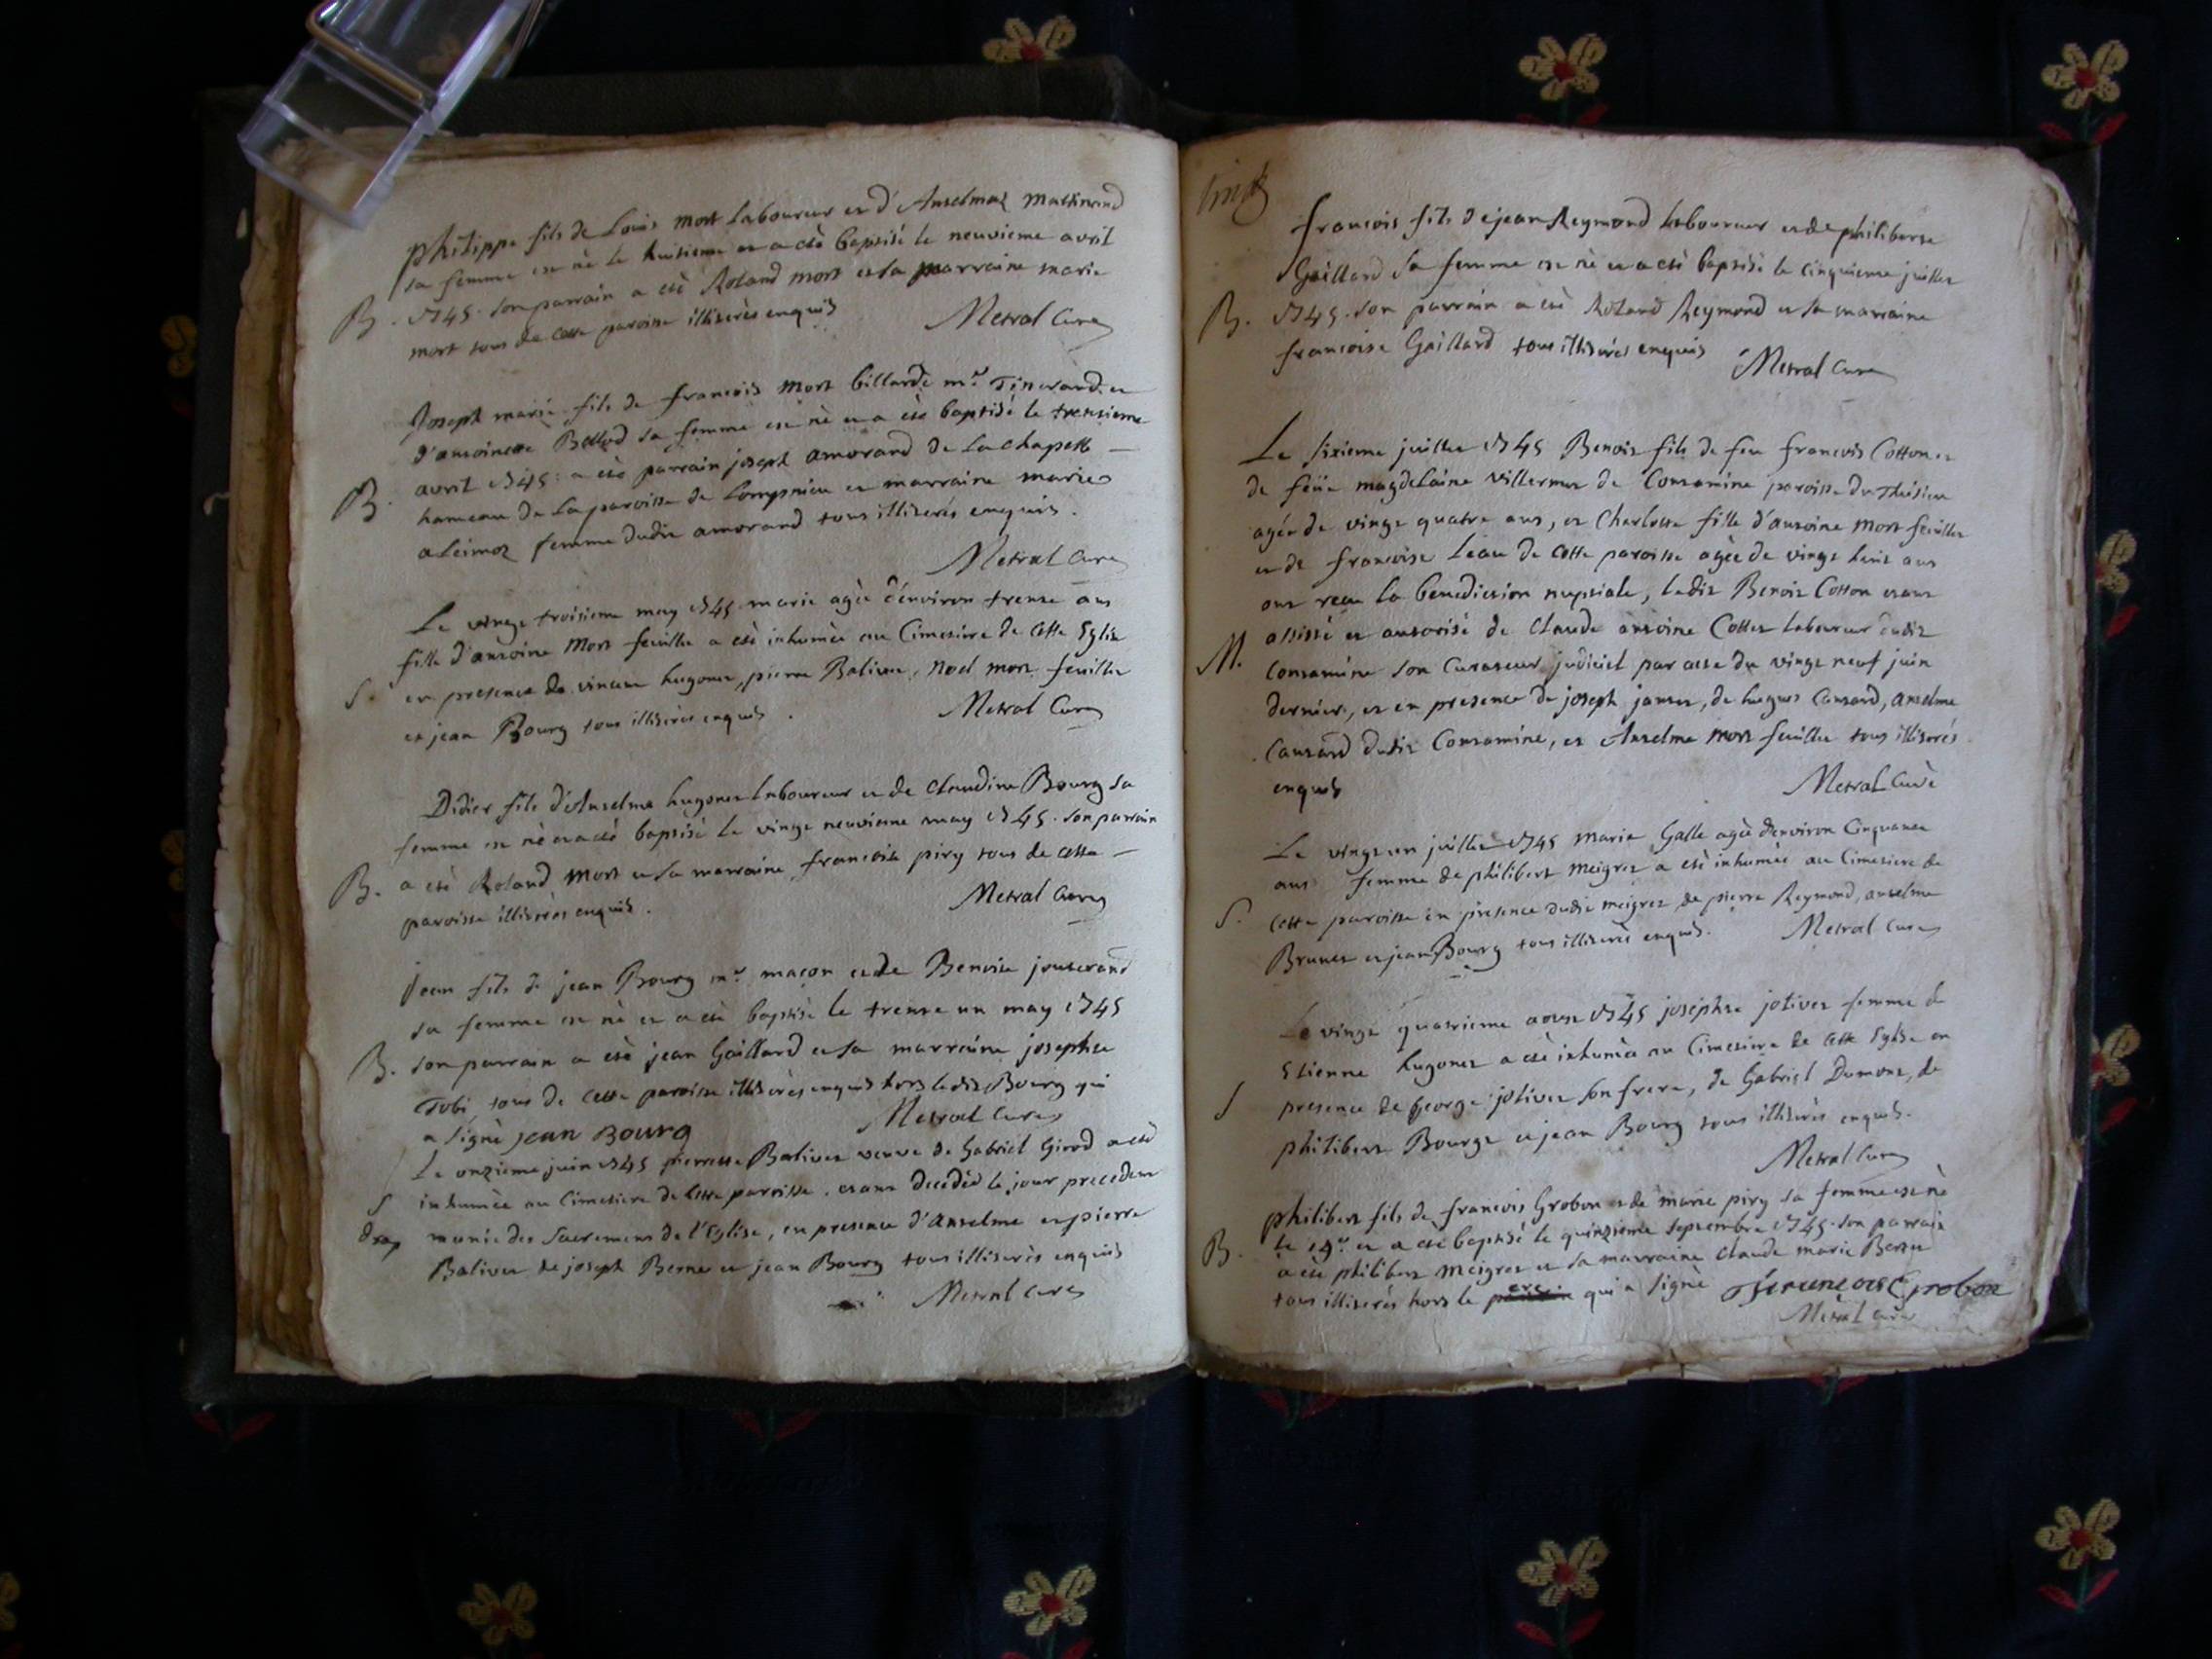 philippe fils de Louis mort laboureur et d'Anselmaz
sa femme est né le huitieme et a eté baptisé le neuvieme avril
B. 1745. son parrain a eté Roland mort et sa marraine marie
mort tous de cette paroisse illiterés enquis
Metral Curé
Joseph marie fils de francois mort billarde m.e et
d'antoinette Bellod sa femme est né et a eté baptisé le trensieme
avril 1745: a eté parrain joseph amorand de la chapelle
B. hameau de la paroisse de Lompnieu et marraine marie
femme dudit amorand tous illiterés enquis.
Metral Curé
Le vingt troisieme may 1745 marie agée d'environ trente ans
fille d'antoine Mort feuillet a eté inhumée au Cimetiere de cette Eglise
S. en presence de vincent hugonet, pierre Balivet, noel mort feuillet
et jean Bourg tous illiterés enquis.
Metral Curé
Didier fils d'Anselme hugonet laboureur et de Claudine Bourg sa
femme est né et a eté baptisé le vingt neuvieme may 1745. son parrain
B. a eté Roland Mort et sa marraine francoise piry tous de cette
paroisse illiterés enquis.
Metral Curé
Jean fils de jean Bourg m.e maçon et de Benoite jouterand
sa femme est né et a eté baptisé le trente un may 1745
B. son parrain a eté jean Gaillard et sa marraine josephte
Tobi, tous de cette paroisse illiterés enquis hors ledit Bourg qui
a signé jean Bourg Metral Curé
Le onzieme juin 1745 pierrette Balivet veuve de Gabriel Girod a eté
S inhumée au Cimetiere de cette paroisse. etant decedée le jour precedent
munie des Sacremens de l'Eglise, en presence d'Anselme et pierre
Balivet de joseph Berne et jean Bourg tous illiterés enquis
Metral Curé
francois fils de jean Reymond laboureur et de philiberte
Gaillard sa femme est né et a eté baptisé le cinquieme juillet
B. 1745. son parrain a eté Roland Reymond et sa marraine
francoise Gaillard tous illiterés enquis
Metral Curé
Le sixieme juillet 1745 Benoit fils de feu francois Cotton et
de feüe magdelaine villermet de Contamine paroisse du
agée de vingt quatre ans, et Charlotte fille d'antoine Mort feuillet
et de francoise Leau de cette paroisse agée de vingt huit ans
ont reçu la benediction nuptiale, ledit Benoit Cotton etant
assisté et autorisé de Claude antoine Cottet laboureur dudit
M. Contamine son Curateur judiciel par acte du vingt neuf juin
dernier, et en presence de joseph jantet, de hugues Cantard, anselme
Cantard dudit Contamine, et Anselme mort feuillet tous illiterés
enquis
Metral Curé
Le vingt un juillet 1745 marie Galle agée d'environ Cinquante
ans femme de philibert meigret a eté inhumée au Cimetiere de
S. cette paroisse en presence dudit meigret de pierre Reymond, anselme
Brunet et jean Bourg tous illiterés enquis. Metral Curé
Le vingt quatrieme aoust 1745 josephte jolivet femme de
Etienne hugonet a eté inhumée au Cimetiere de cette Eglise en
S presence de george jolivet son frere, de Gabriel Dumont, de
philibert Bourge et jean Bourg tous illiterés enquis.
Metral Curé
philibert fils de francois Grobon et de marie piry sa femme est né
B. le 14.e et a eté baptisé le quinzieme septembre 1745. son parrain
a eté philibert meigret et sa marraine Claude marie
tous illiterés hors le pere qui a signé francois Grobon
Metral Curé